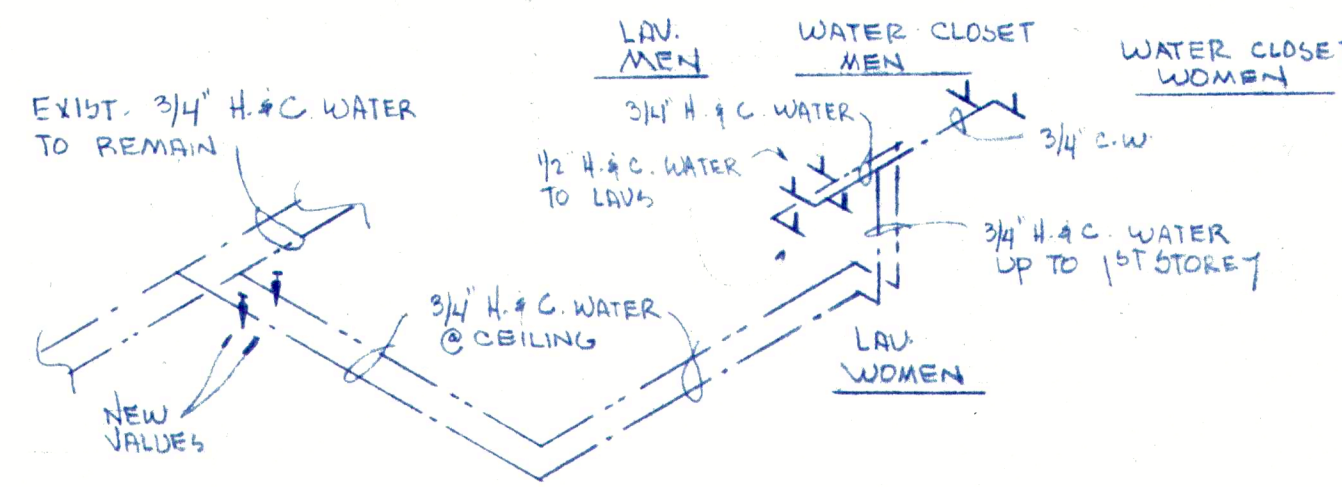 LAV.
MEN
WATER CLOSET
MEN
WATER CLOSE
WOMEN
EXIST. 3/4" H. & C. WATER
TO REMAIN
3/4" H. & C. WATER
3/4" C.W.
1/2" H. & C. WATER
TO LAVS
3/4" H. & C. WATER
UP TO 1ST STOREY
3/4" H. & C. WATER
@ CEILING
LAV.
WOMEN
NEW
VALVES